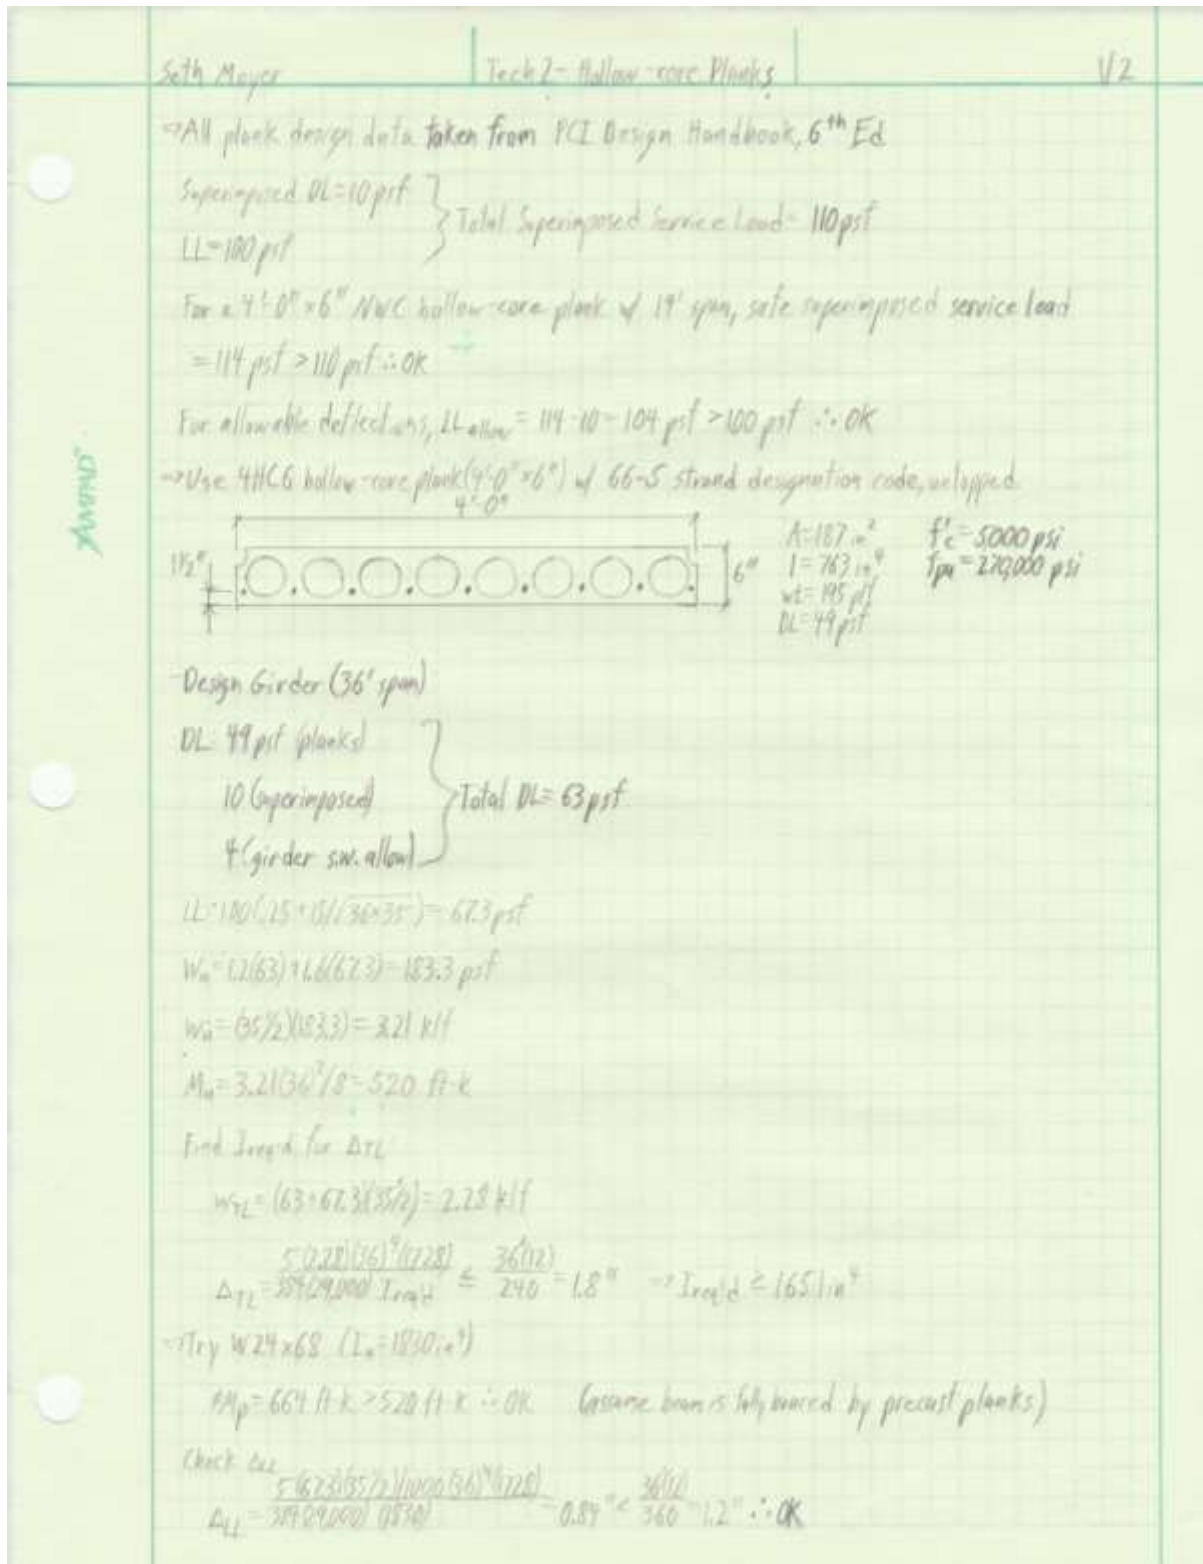 Seth Moyer
Tech 2 - Hollow-core Planks
1/2
→All plank design data taken from PCI Design Handbook, 6th Ed
Superimposed DL=10psf
LL=100 psf
} Total Superimposed Service Load= 110psf
For a 4'-0"x6" NWC hollow-core plank w/ 19' span, safe superimposed service load
=114 psf >110 psf ∴OK
For allowable deflections, LLallow = 114-10=104 psf >100 psf ∴ OK
→Use 4HC6 hollow-core plank(4'-0"x6") w/ 66-S strand designation code, untopped
4'-0"
1 1/2"
6"
A=187 in²
I=763 in⁴
wt=195 plf
DL=49psf
f'c=5000 psi
fpu=270,000 psi
AMPAD
Design Girder (36' span)
DL: 49psf (planks)
10 (superimposed)
4(girder s.w. allow)
} Total DL= 63psf
LL=100(.25+15/√36×35)=67.3psf
Wu=1.2(63)+1.6(67.3)=183.3 psf
wu=(35/2)(183.3)=3.21 klf
Mu=3.21(36)²/8=520 ft-k
Find Ireq'd for ΔTL
wTL=(63+67.3)(35/2)=2.28 klf
ΔTL=5(2.28)(36)⁴(1728)/384(29,000) Ireq'd ≤ 36'(12)/240 =1.8" →Ireq'd ≥1651in⁴
→Try W24x68 (Ix=1830in⁴)
ΦMp=664 ft-k >520 ft-k ∴OK (assume beam is fully braced by precast planks)
Check ΔLL
ΔLL=5(67.3)(35/2)/1000(36)⁴(1728)/384(29,000)(1830) =0.84"< 36(12)/360 =1.2" ∴OK